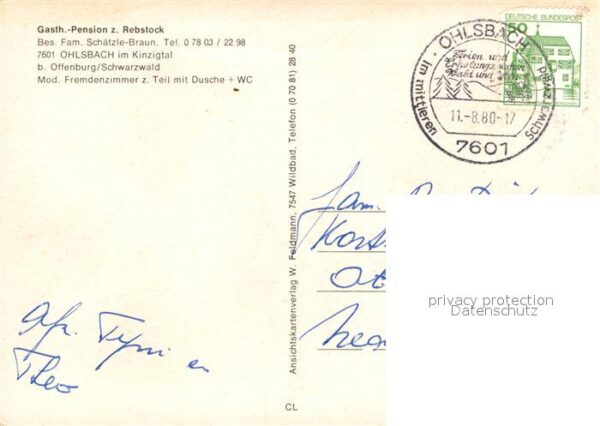 Gasth.-Pension z. Rebstock
Bes. Fam. Schätzle-Braun, Tel. 0 78 03 / 22 98
7601 OHLSBACH im Kinzigtal
b. Offenburg/Schwarzwald
Mod. Fremdenzimmer z. Teil mit Dusche + WC
Ansichtskartenverlag W. Feldmann, 7547 Wildbad, Telefon (0 70 81) 28 40
CL
DEUTSCHE BUNDESPOST
50
OHLSBACH
Ferien und
Wald und
im mittleren Schwarzwald
11.-8.80-17
7601
Fam.
privacy protection
Datenschutz
Theo